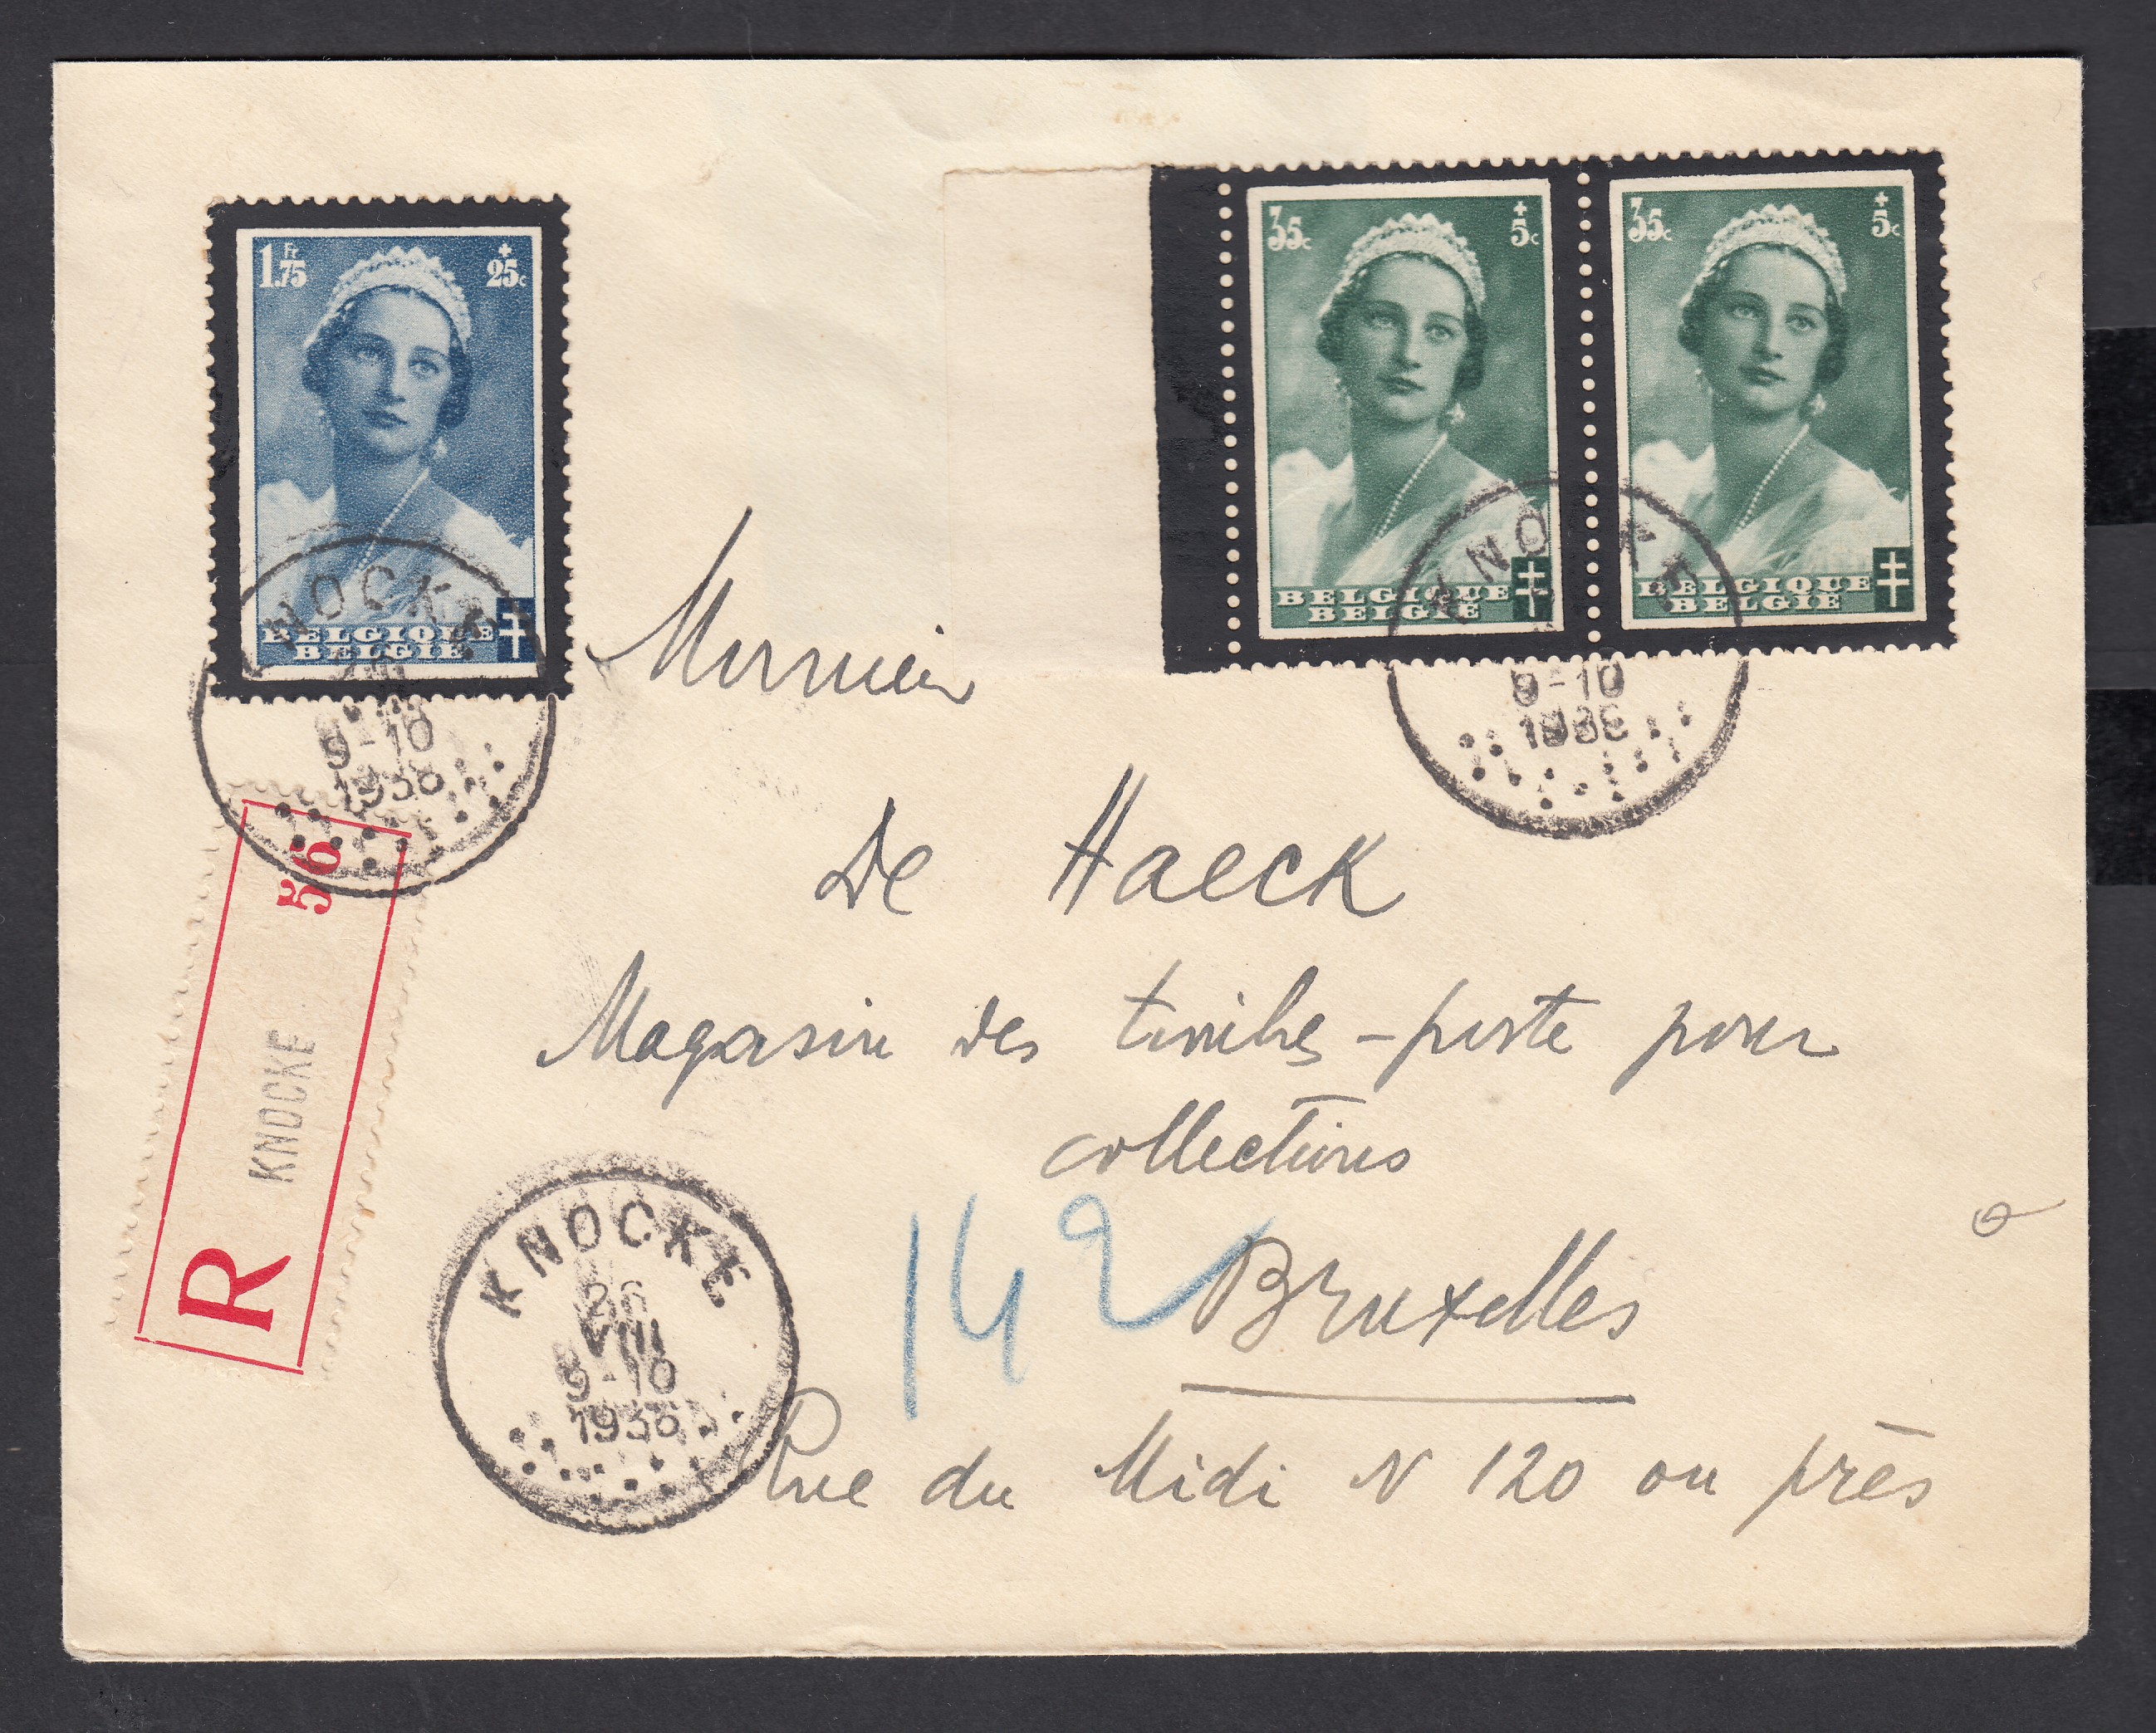 1Fr.75 + 25c
BELGIQUE
BELGIE
35c + 5c
BELGIQUE
BELGIE
35c + 5c
BELGIQUE
BELGIE
KNOCKE
9-10
KNOCKE
9-10
Monsieur
De Haeck
Magasin des timbres-poste pour
collections
142
Bruxelles
Rue du Midi N 120 ou près
R
KNOCKE
56
KNOCKE
26
VIII
9-10
1936